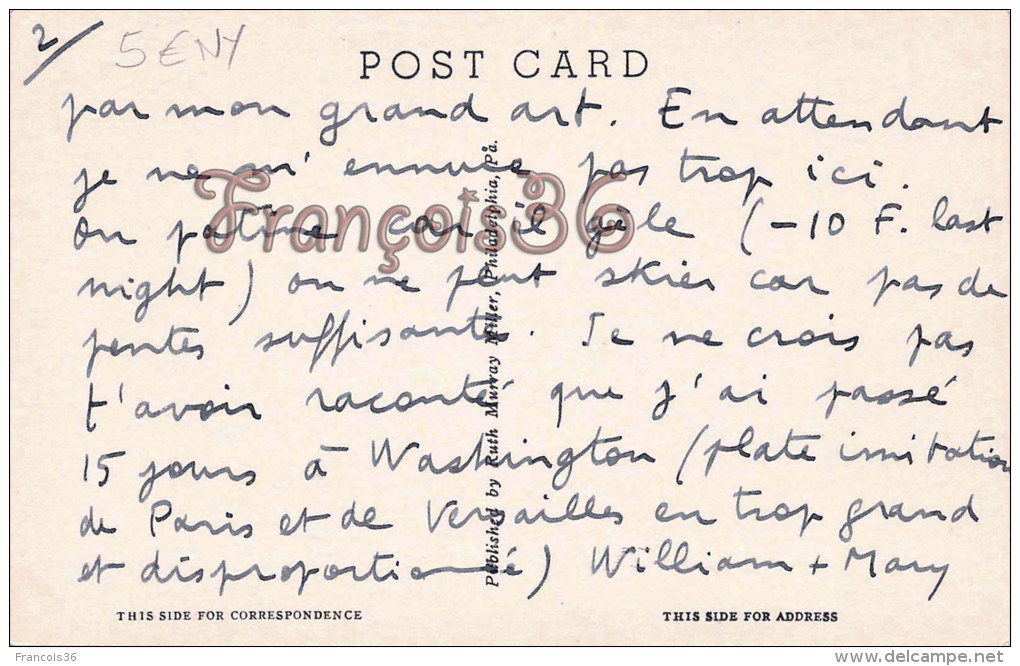 2/
5 ENY
POST CARD
par mon grand art. En attendant
je ne m'ennuie pas trop ici.
On patine car il gèle (-10 F. last
night) on ne peut skier car pas de
pentes suffisantes. Je ne crois pas
t'avoir raconté que j'ai passé
15 jours à Washington (plate imitation
de Paris et de Versailles en trop grand
et disproportionné) William + Mary
Published by Ruth Murray Miller, Philadelphia, Pa.
THIS SIDE FOR CORRESPONDENCE
THIS SIDE FOR ADDRESS
François36
Francois36
www.delcampe.net